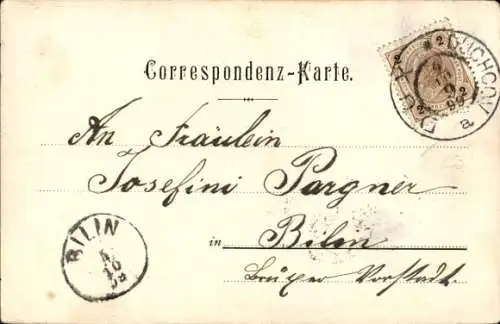 Correspondenz-Karte.
An Fräulein
Josefini Pargner
in Bilin
Brüxer Vorstadt.
BILIN